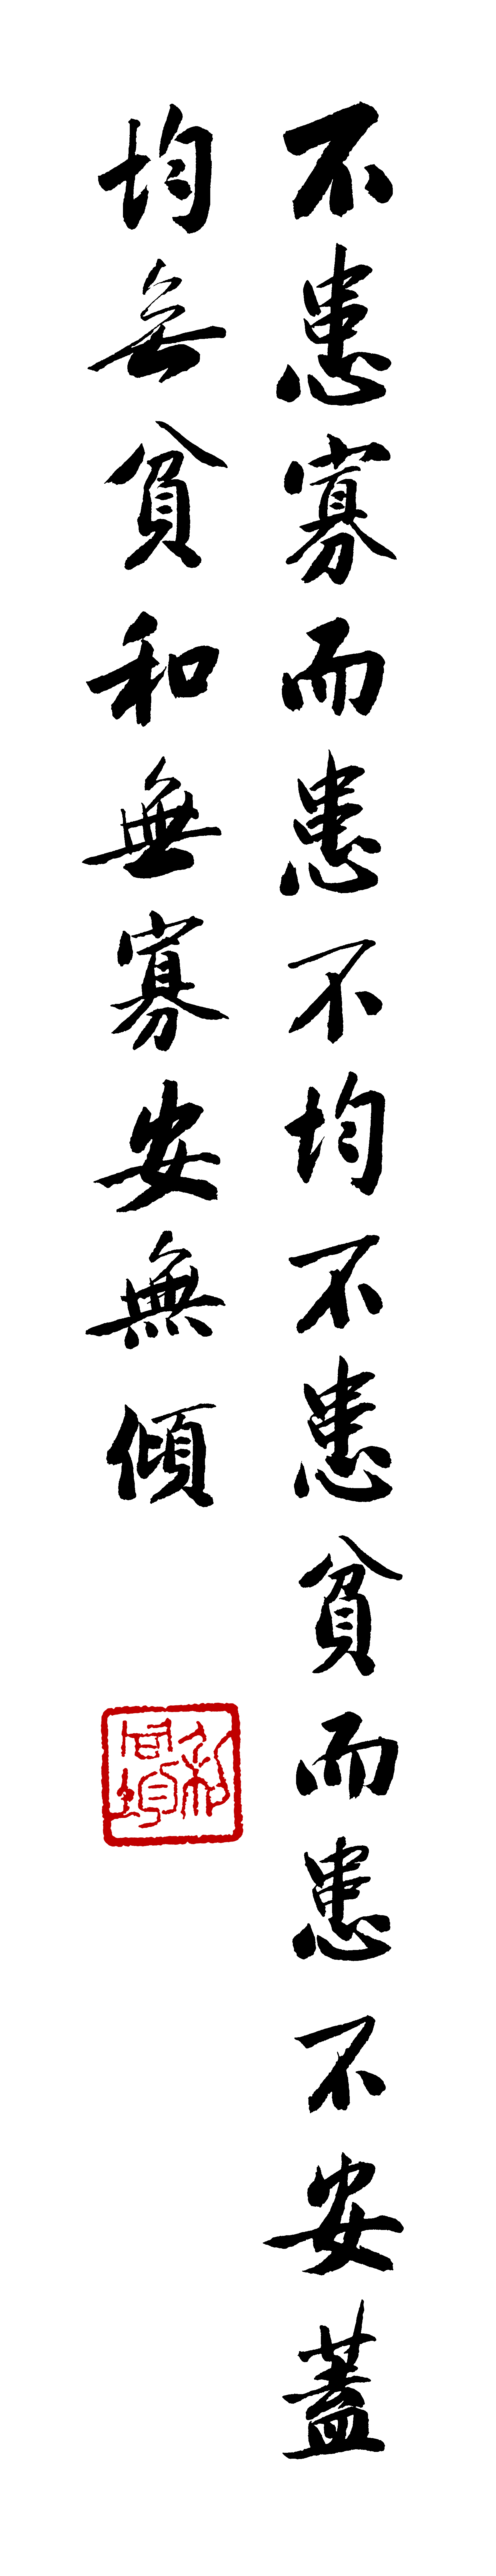 不患寡而患不均不患貧而患不安蓋
均無貧和無寡安無傾